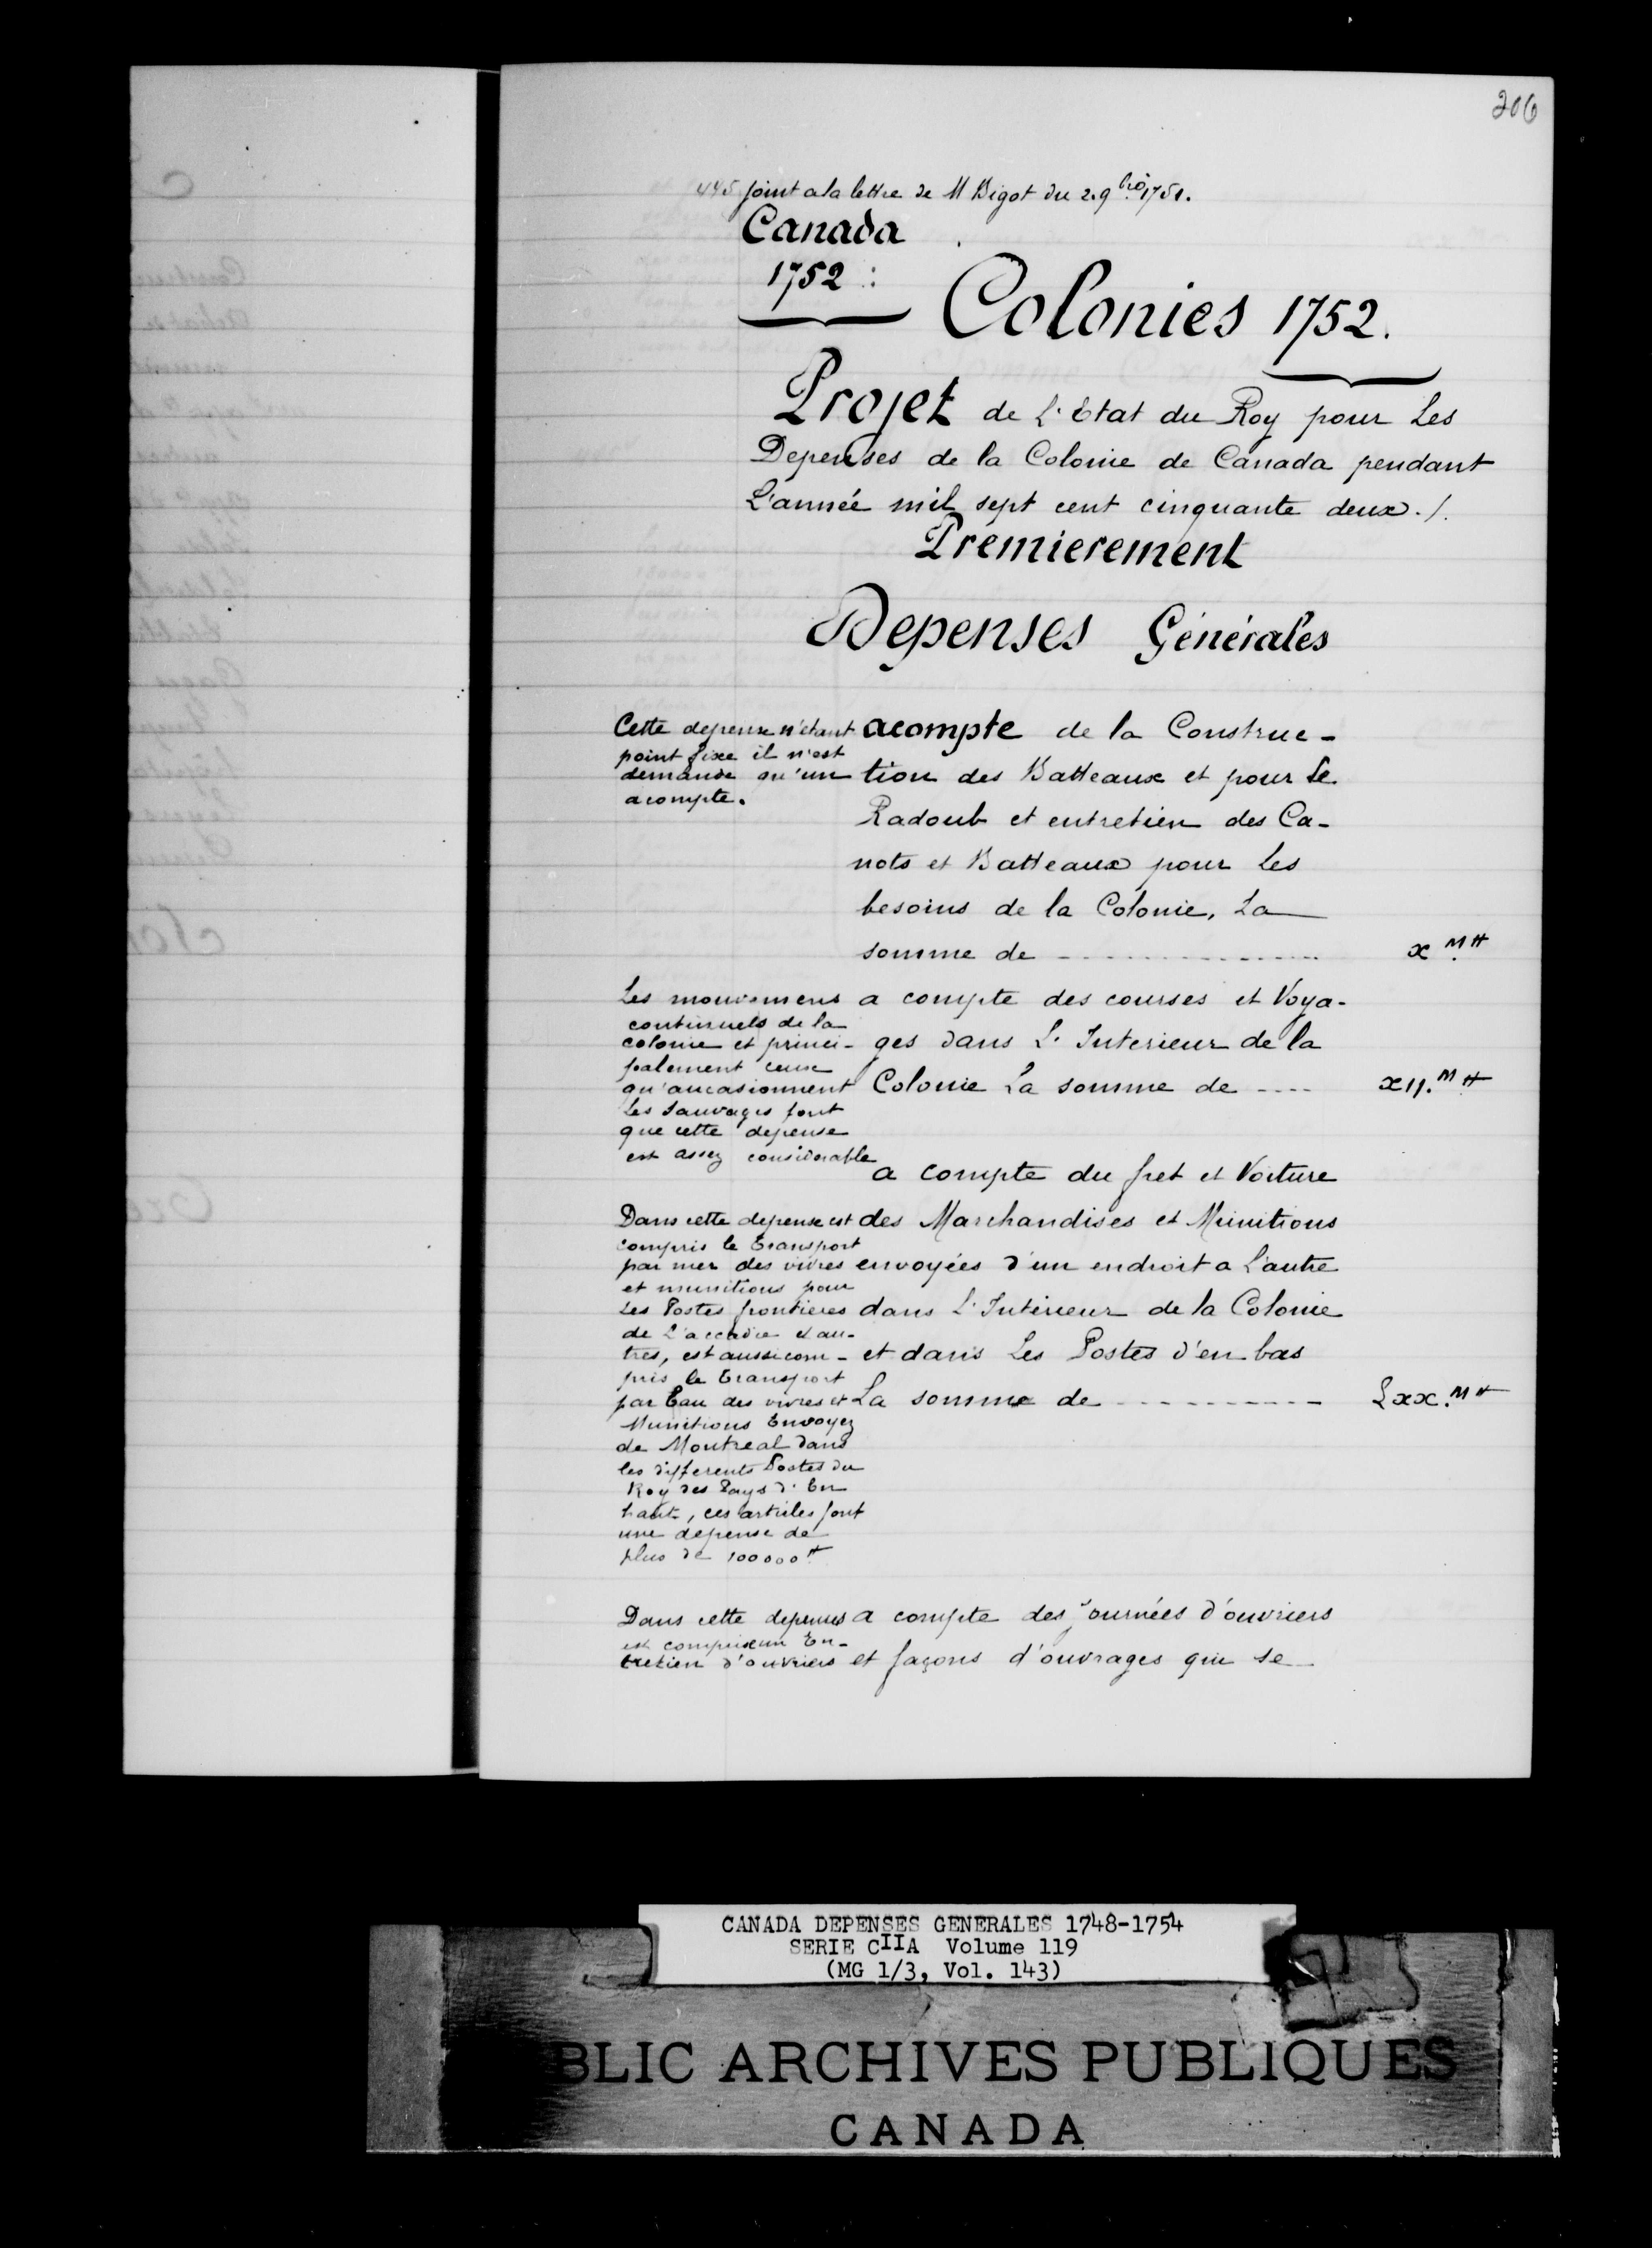 206
445 Joint a la lettre de M Bigot du 2. 9bre 1751.
Canada
1752 :
Colonies 1752.
Projet de L'Etat du Roy pour Les
Depenses de la Colonie de Canada pendant
L'année mil sept cent cinquante deux ./.
Premierement
Depenses Générales
Cette depense n'étant
point fixe il n'est
demandé qu'un
acompte.
acompte de la Construc-
tion des Batteaux et pour Le
Radoub et entretien des Ca-
nots et Batteaux pour Les
besoins de la Colonie, La
somme de ---------------- x.M ₶
Les mouvemens
continuels de la
colonie et princi-
palement ceux
qu'aucasionnent
Les Sauvages font
que cette depense
est assez considerable
a compte des courses et Voya-
ges dans L'Interieur de la
Colonie La somme de ---- x11.M ₶
Dans cette depense est
compris le transport
par mer des vivres
et munitions pour
Les Postes frontieres
de L'accadie et au-
tres, est aussi com-
pris le transport
par Eau des vivres et
Munitions Envoyez
de Montreal dans
les differents Postes du
Roy des Pays d'En
haut, ces articles font
une depense de
plus de 100000 ₶
a compte du fret et Voiture
des Marchandises et Munitions
envoyées d'un endroit a L'autre
dans L'Interieur de la Colonie
et dans Les Postes d'en bas
La somme de ----------- Lxx.M ₶
Dans cette depenses
est compris un En-
tretien d'ouvriers
a compte des journées d'ouvriers
et façons d'ouvrages qui se
CANADA DEPENSES GENERALES 1748-1754
SERIE CIIA Volume 119
(MG 1/3, Vol. 143)
BLIC ARCHIVES PUBLIQUES
CANADA